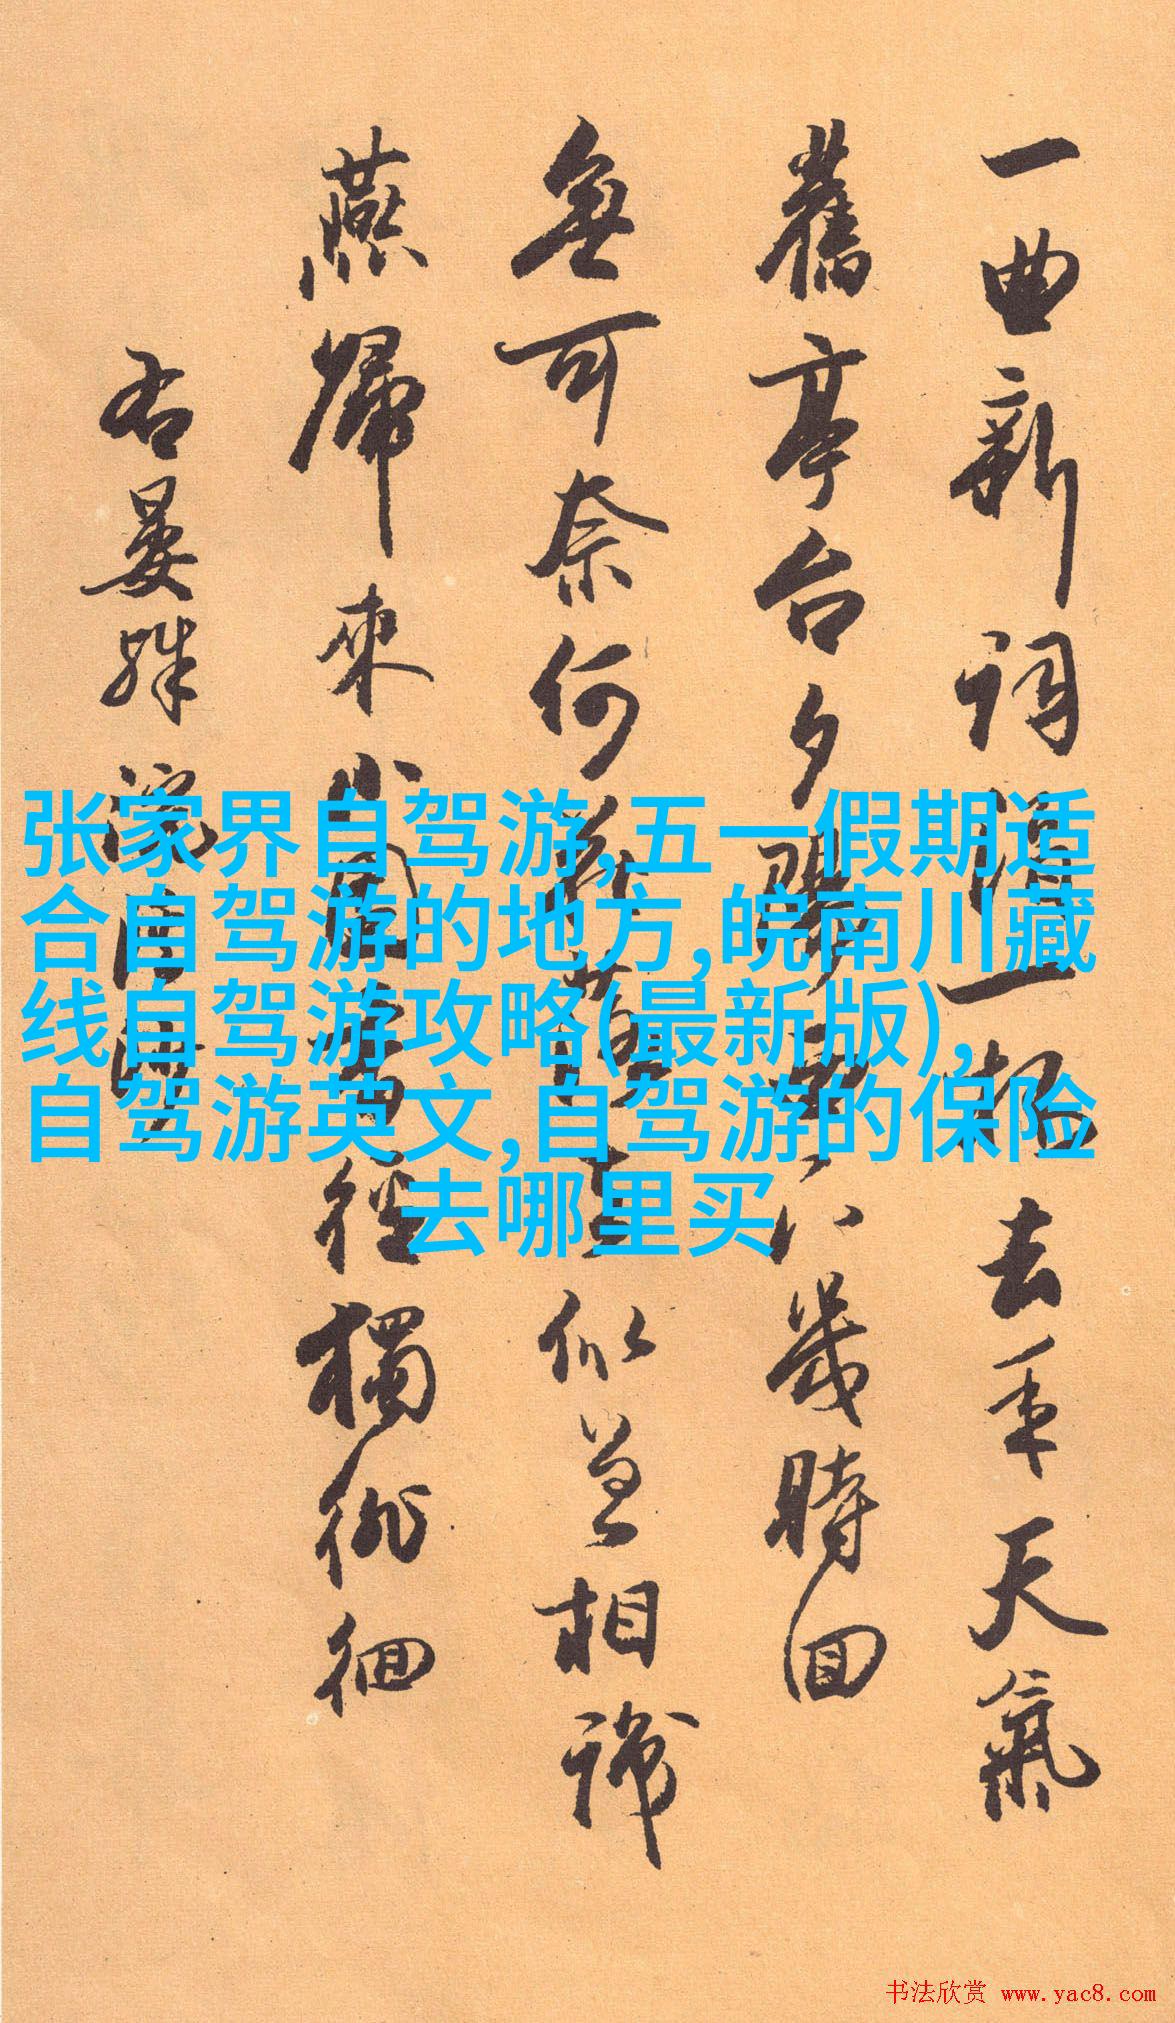 一曲新詞酒一杯去年天氣
舊亭台夕陽西下幾時回
無可奈何花落去似曾相識
燕歸來小園香徑獨徘徊
右晏殊浣溪沙
张家界自驾游,五一假期适
合自驾游的地方,皖南川藏
线自驾游攻略(最新版),
自驾游英文,自驾游的保险
去哪里买
书法欣赏 www.yac8.com